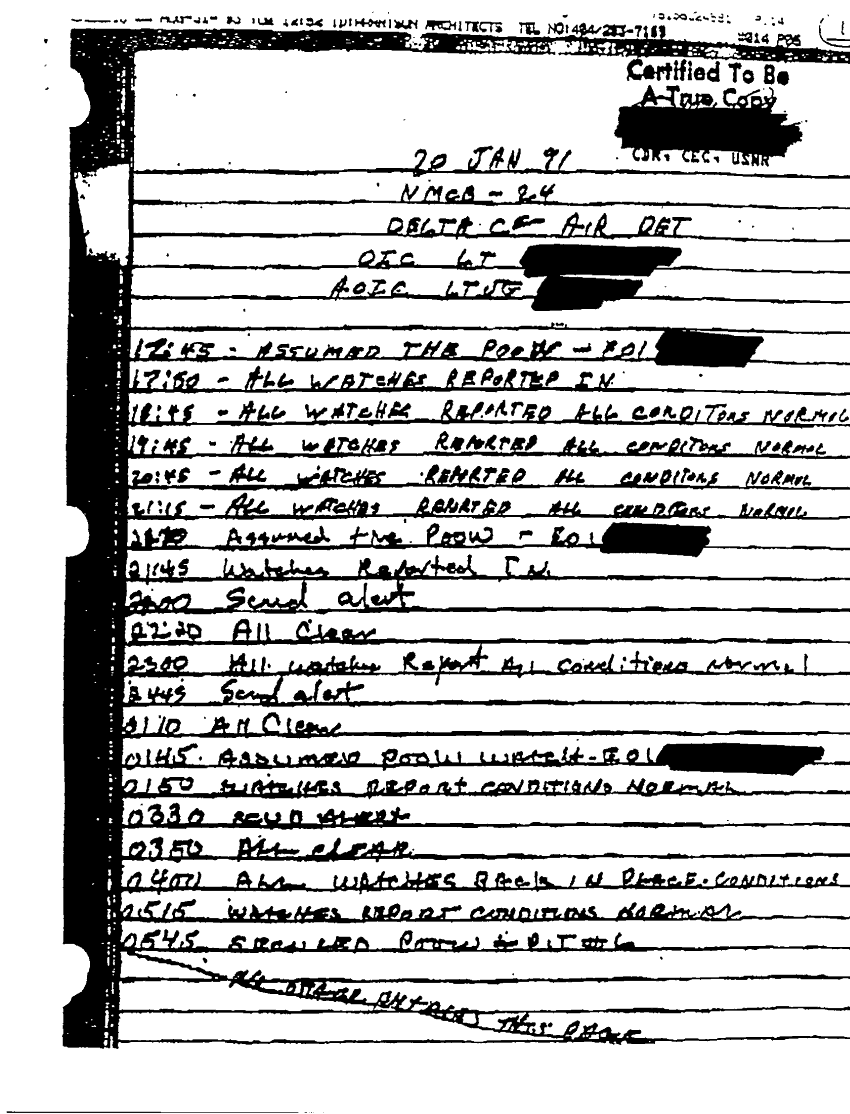 ARCHITECTS TEL NO:484/283-7169
#214 P06
Certified To Be
A True Copy
CDR, CEC, USNR
20 JAN 91
NMCB - 24
DELTA CF AIR DET
OIC LT
AOIC LTJG
17:45 - ASSUMED THE POOW - EO1
17:50 - ALL WATCHES REPORTED IN
18:45 - ALL WATCHES REPORTED ALL CONDITONS NORMAL
19:45 - ALL WATCHES REPORTED ALL CONDITONS NORMAL
20:45 - ALL WATCHES REPORTED ALL CONDITONS NORMAL
21:15 - ALL WATCHES REPORTED ALL CONDITONS NORMAL
Assumed the POOW - EO1
21:45 Watches Reported IN
2200 Scud alert
22:20 All Clear
2300 All watches Report All conditions normal
Scud alert
0110 All Clear
0145 ASSUMED POOW WATCH - EO1
0150 WATCHES REPORT CONDITIONS NORMAL
0330 SCUD ALERT
0350 ALL CLEAR
0400 ALL WATCHES BACK IN PLACE. CONDITIONS
0515 WATCHES REPORT CONDITIONS NORMAL
0545 POOW
THIS PAGE